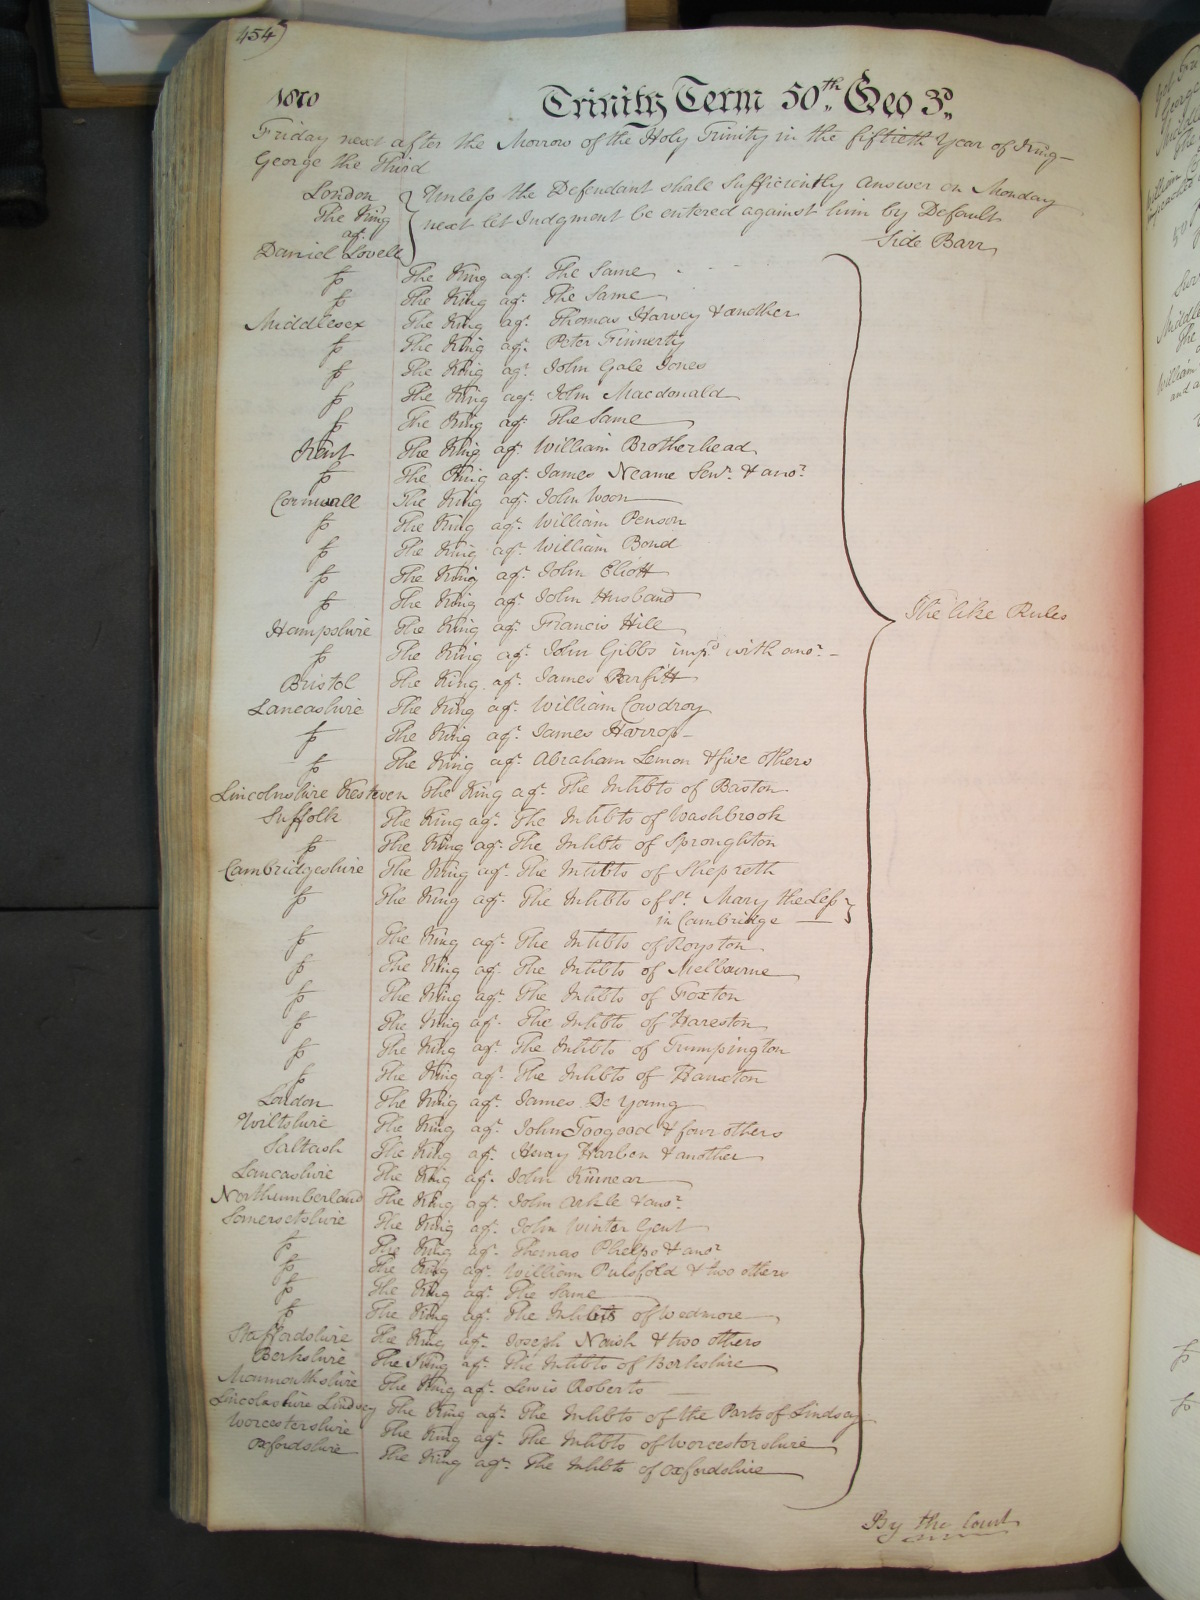 454)
1810 Trinity Term 50th. Geo 3d.
Friday next after the Morrow of the Holy Trinity in the fiftieth Year of King
George the Third
London
The King
agt.
Daniel Lovell
Unless the Defendant shall Sufficiently answer on Monday
next let Judgment be entered against him by Default
Side Barr
fs The King agt. The Same
fs The King agt. The Same
Middlesex The King agt. Thomas Harvey & another
fs The King agt. Peter Finnerty
fs The King agt. John Gale Jones
fs The King agt. John Macdonald
fs The King agt. The Same
Kent The King agt. William Brotherhead
fs The King agt. James Neame Senr. & anor.
Cornwall The King agt. John Woon
fs The King agt. William Penson
fs The King agt. William Bond
fs The King agt. John Eliott
fs The King agt. John Husband
Hampshire The King agt. Francis Hill
fs The King agt. John Gibbs impd. with anor.
Bristol The King agt. James Parfitt
Lancashire The King agt. William Cowdroy
fs The King agt. James Harrop
fs The King agt. Abraham Lemon & five others
Lincolnshire Kesteven The King agt. The Inhbts of Baston
Suffolk The King agt. The Inhbts of Washbrook
fs The King agt. The Inhbts of Sproughton
Cambridgeshire The King agt. The Inhbts of Shepreth
fs The King agt. The Inhbts of St. Mary the Less
in Cambridge
fs The King agt. The Inhbts of Royston
fs The King agt. The Inhbts of Melbourne
fs The King agt. The Inhbts of Foxton
fs The King agt. The Inhbts of Hareston
fs The King agt. The Inhbts of Trumpington
fs The King agt. The Inhbts of Hauxton
London The King agt. James De Young
Wiltshire The King agt. John Toogood & four others
Saltash The King agt. Henry Harben & another
Lancashire The King agt. John Kinnear
Northumberland The King agt. John Arkle & anor.
Somersetshire The King agt. John Winter Gent
fs The King agt. Thomas Phelps & anor
fs The King agt. William Pulsfold & two others
fs The King agt. The Same
fs The King agt. The Inhbts of Wedmore
Staffordshire The King agt. Joseph Naish & two others
Berkshire The King agt. The Inhbts of Berkshire
Monmouthshire The King agt. Lewis Roberts
Lincolnshire Lindsey The King agt. The Inhbts of the Parts of Lindsey
Worcestershire The King agt. The Inhbts of Worcestershire
Oxfordshire The King agt. The Inhbts of Oxfordshire
The like Rules
By the Court